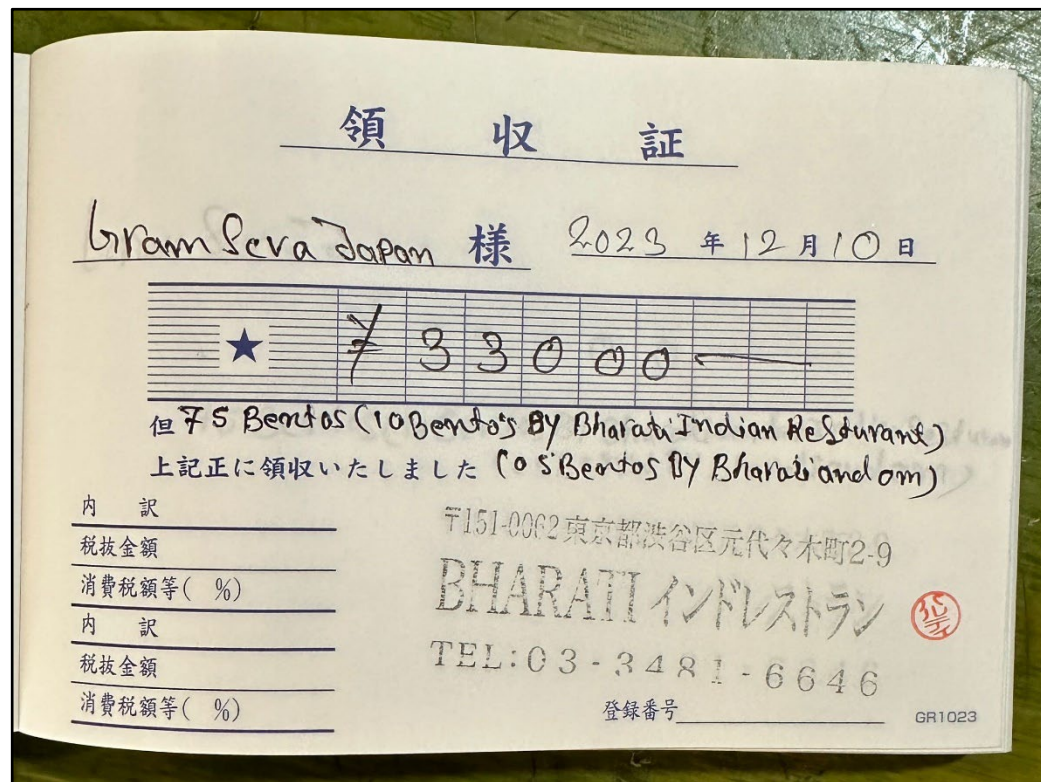 領 収 証
Gram Seva Japan 様 2023 年 12 月 10 日
★ ¥ 33000 —
但 75 Bentos (10 Bento's By Bharati Indian Resturant)
上記正に領収いたしました (05 Bentos By Bharati and om)
内 訳
税抜金額
消費税額等( %)
内 訳
税抜金額
消費税額等( %)
〒151-0062 東京都渋谷区元代々木町2-9
BHARATI インドレストラン
TEL:03-3481-6646
登録番号
GR1023